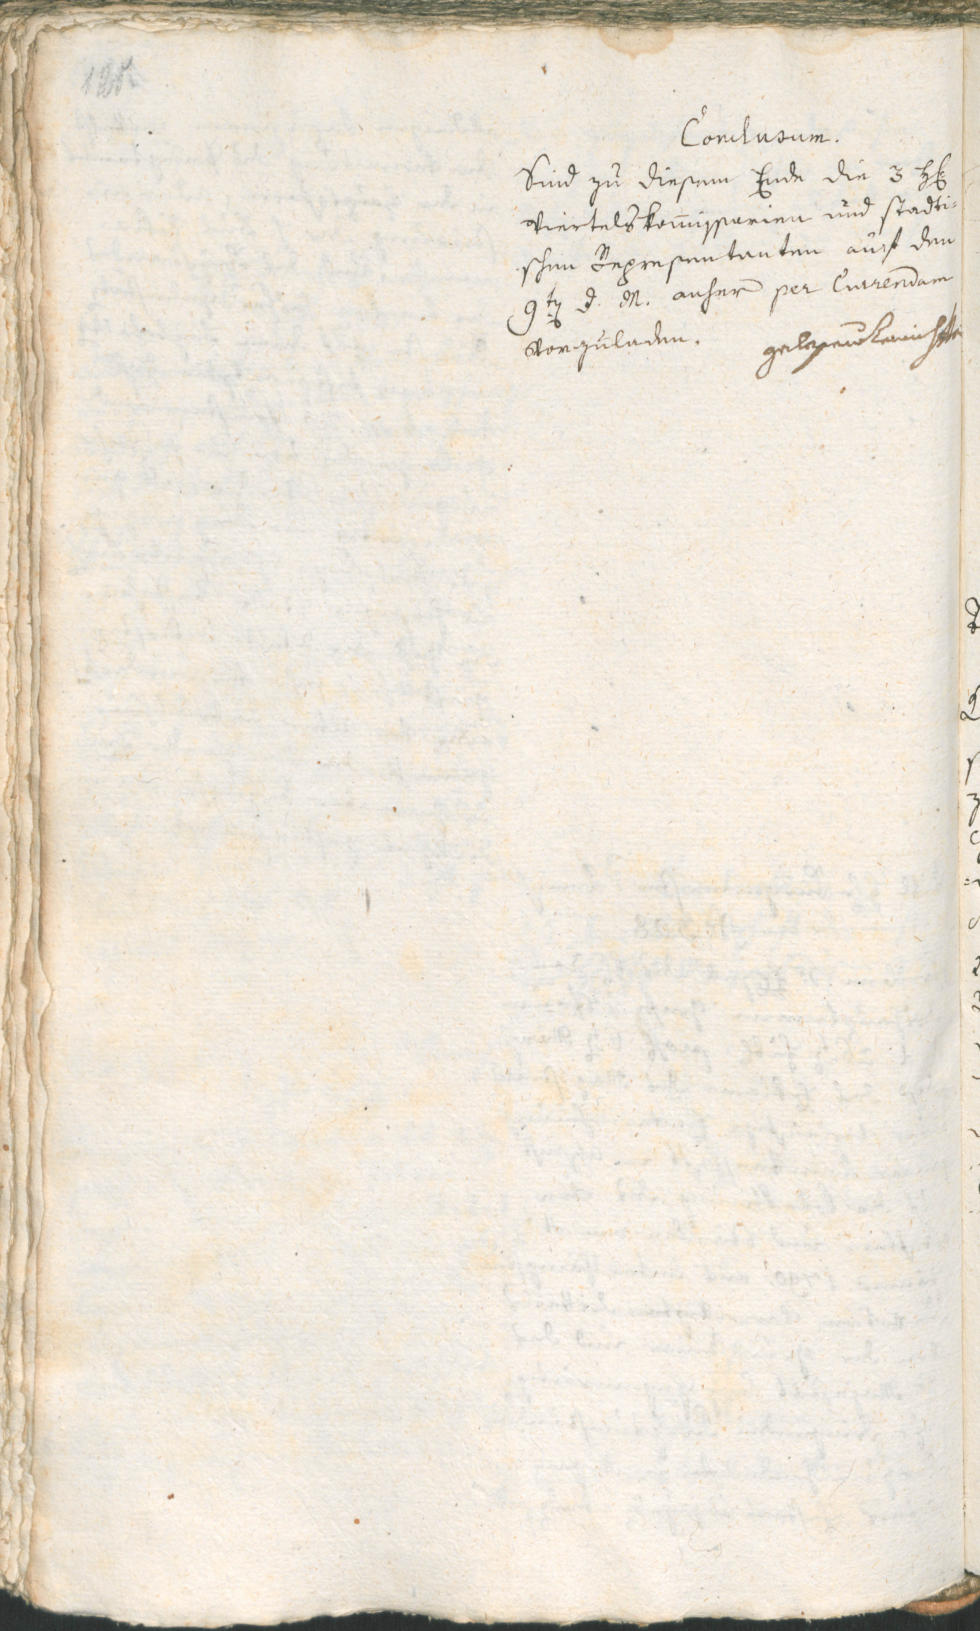 Conclusum.
Sind zu diesem Ende die 3 HH
Viertelskom̄issarien und stadti-
schen Representanten auf den
9ten d. M. anher per Currendam
vorzuladen.